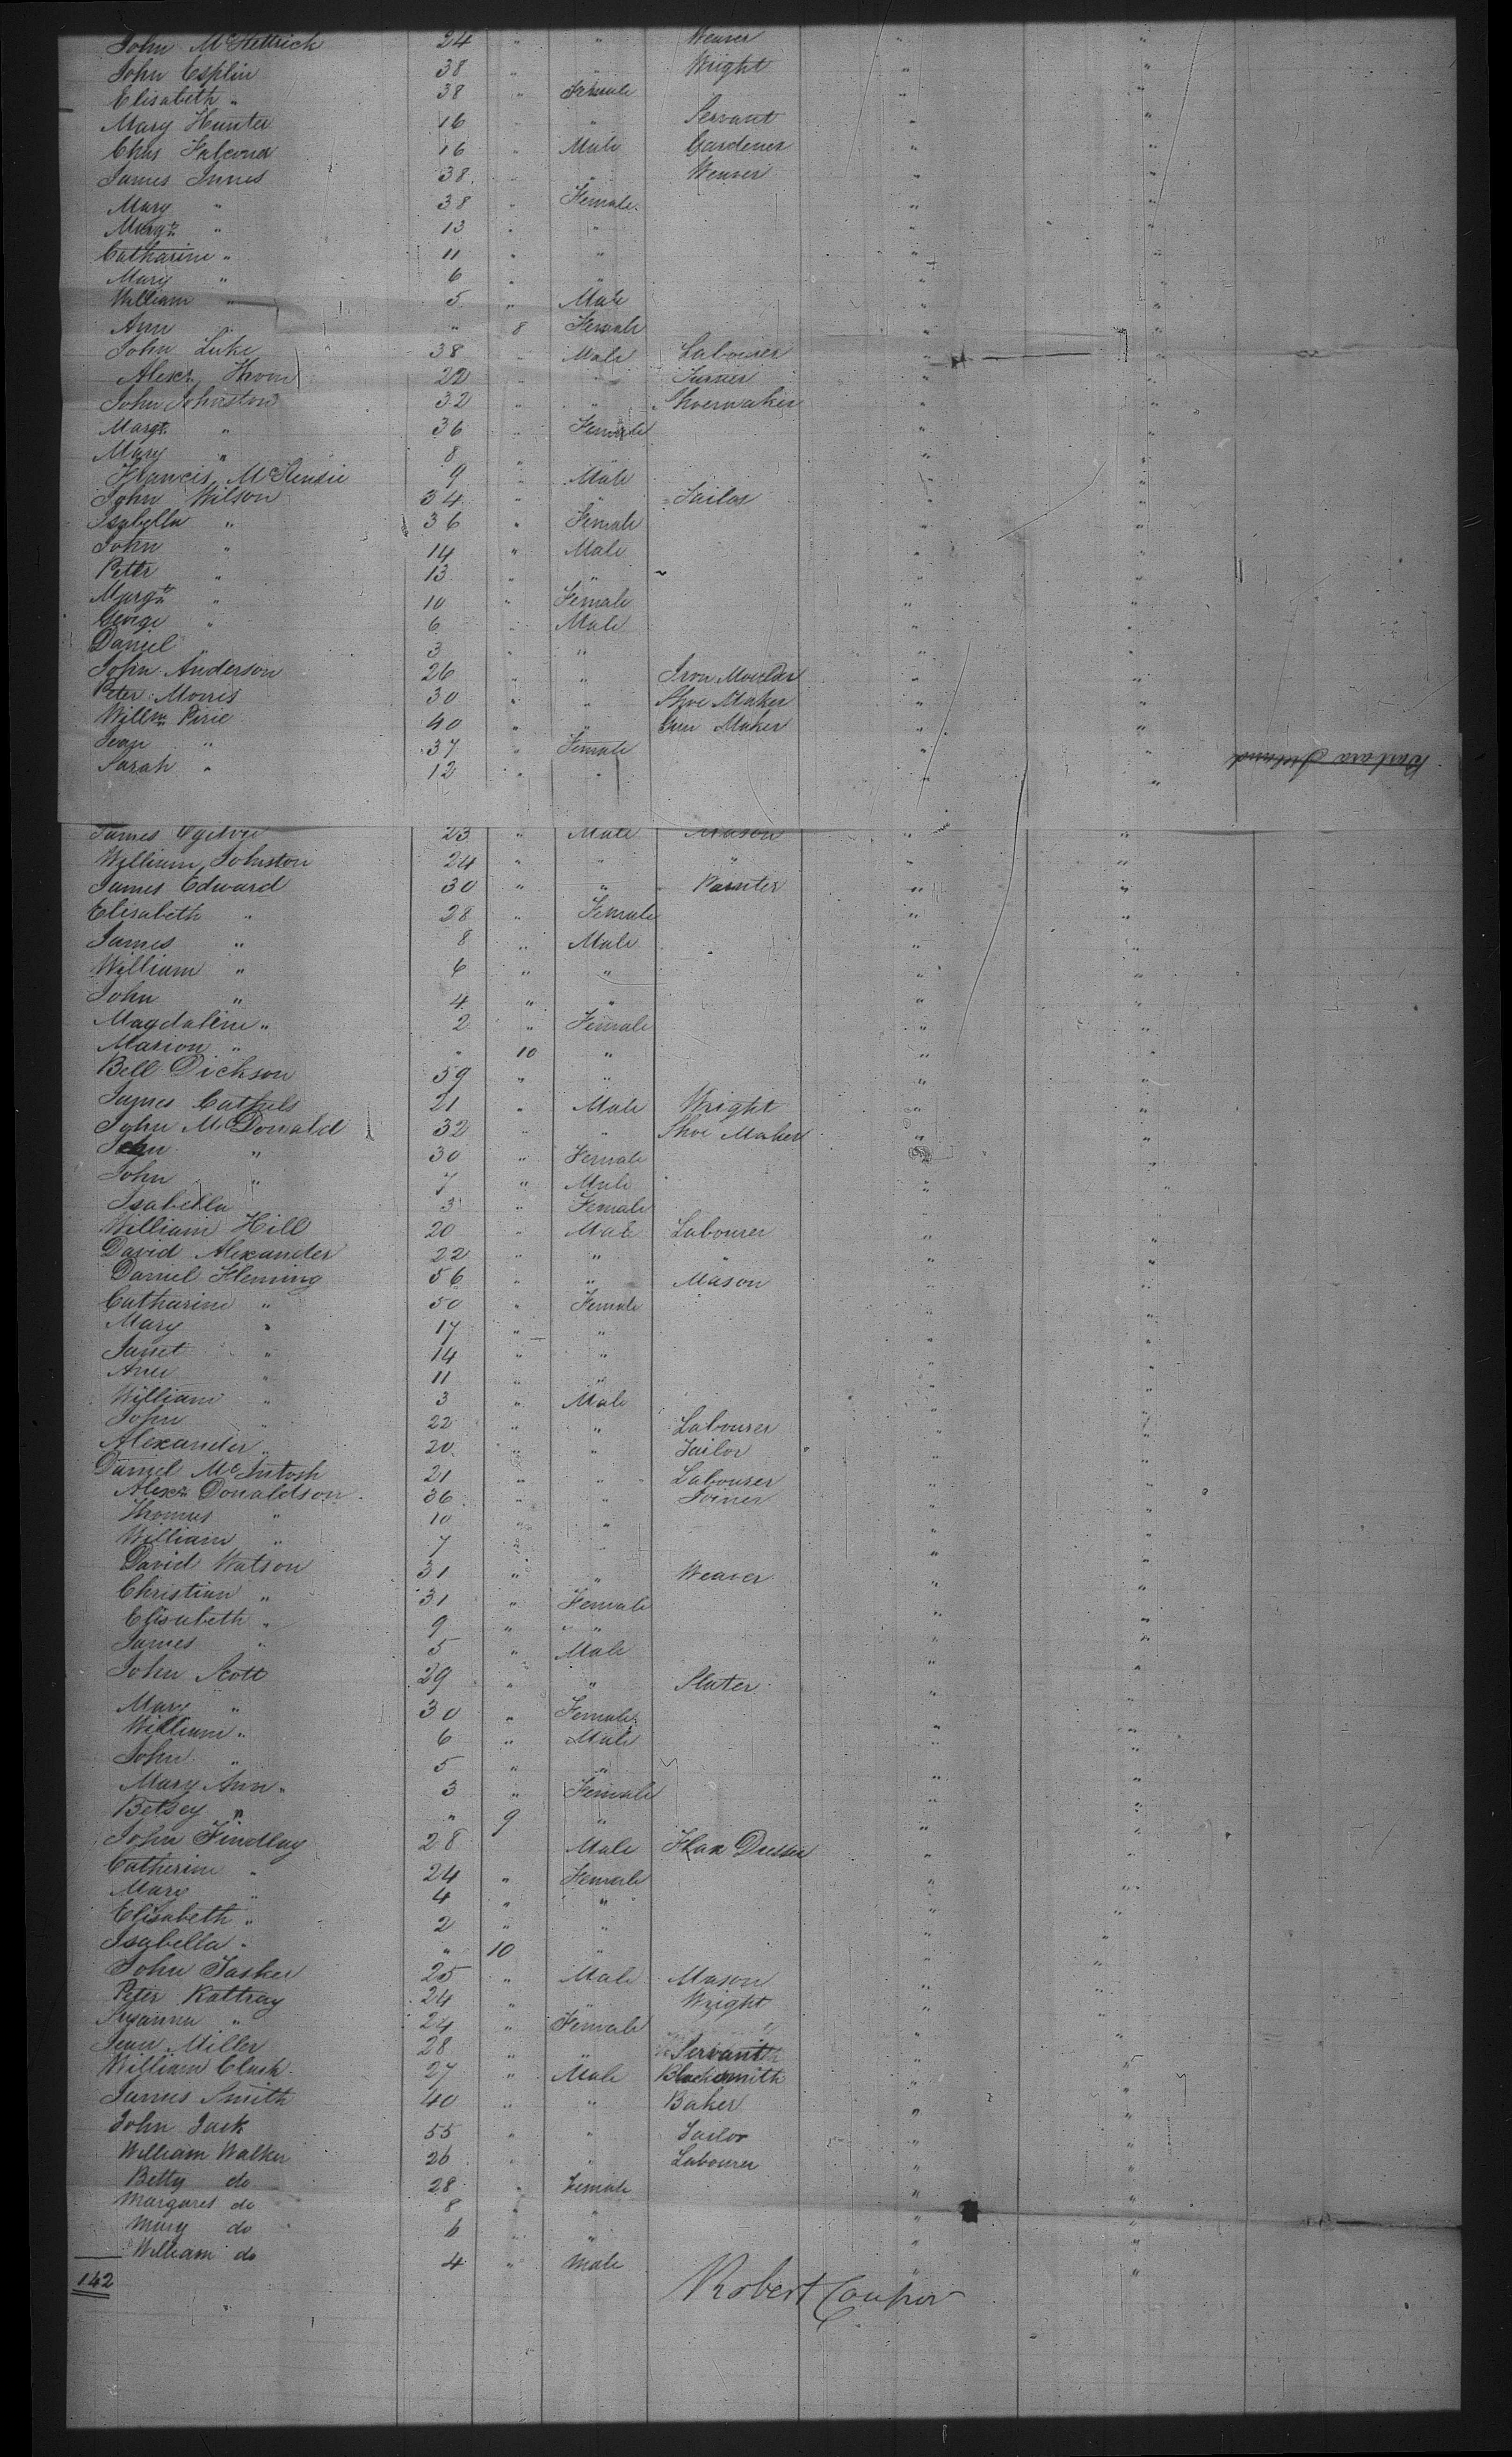 John McKettrick 24 " " Weaver " "
John Esplin 38 " " Wright " "
Elisabeth " 38 " Female " "
Mary Hunter 16 " " Servant " "
Chas Falconer 16 " Male Gardener " "
James Innes 38 " " Weaver " "
Mary " 38 " Female " "
Margt " 13 " " " "
Catharine " 11 " " " "
Mary " 6 " " " "
William " 5 " Male " "
Ann " " 8 Female " "
John Luke 38 " Male Labourer " "
Alexr Thom 22 " " Turner " "
John Johnston 32 " " Shoemaker " "
Margt " 36 " Female " "
Mary " 8 " " " "
Francis McKensie 9 " Male " "
John Wilson 34 " " Tailor " "
Isabella " 36 " Female " "
John " 14 " Male " "
Peter " 13 " " " "
Margt " 10 " Female " "
George " 6 " Male " "
Daniel 3 " " " "
John Anderson 26 " " Iron Moulder " "
Peter Morris 30 " " Shoe Maker " "
Willm Pirie 40 " " Gun Maker " "
Jean " 37 " Female " "
Sarah " 12 " " " "
Barbara Ireland
James Ogilvie 23 " Male Mason " "
William Johnston 24 " " " " "
James Edward 30 " " Painter " "
Elisabeth " 28 " Female " "
James " 8 " Male " "
William " 6 " " " "
John " 4 " " " "
Magdaline " 2 " Female " "
Marion " " 10 " " "
Bell Dickson 59 " " " "
James Cathels 21 " Male Wright " "
John McDonald 32 " " Shoe Maker " "
" 30 " Female " "
John " 7 " Male " "
Isabella 3 " Female " "
William Hill 20 " Male Labourer " "
David Alexander 22 " " " " "
Daniel Fleming 56 " " Mason " "
Catharine " 50 " Female " "
Mary " 17 " " " "
Janet " 14 " " " "
Ann " 11 " " " "
William " 3 " Male " "
John " 22 " " Labourer " "
Alexander " 20 " " Tailor " "
Daniel McIntosh 21 " " Labourer " "
Alexr Donaldson 36 " " Joiner " "
Thomas " 10 " " " "
William " 7 " " " "
David Watson 31 " " Weaver " "
Christian " 31 " Female " "
Elisabeth " 9 " " " "
James " 5 " Male " "
John Scott 29 " " Slater " "
Mary " 30 " Female " "
William " 6 " Male " "
John " 5 " " " "
Mary Ann " 3 " Female " "
Betsey " " 9 " " "
John Findlay 28 Male Flax Dresser " "
Catherine " 24 " Female " "
Mary " 4 " " " "
Elisabeth " 2 " " " "
Isabella " " 10 " " "
John Tasker 25 " Male Mason " "
Peter Rattray 24 " " Wright " "
Susanna " 24 " Female " "
Jean Miller 28 " " Servant " "
William Clark 27 " Male Blacksmith " "
James Smith 40 " " Baker " "
John Jack 55 " " Tailor " "
William Walker 26 " " Labourer " "
Betty do 28 " Female " "
Margaret do 8 " " " "
Mary do 6 " " " "
William do 4 " Male " "
142
Robert Couper